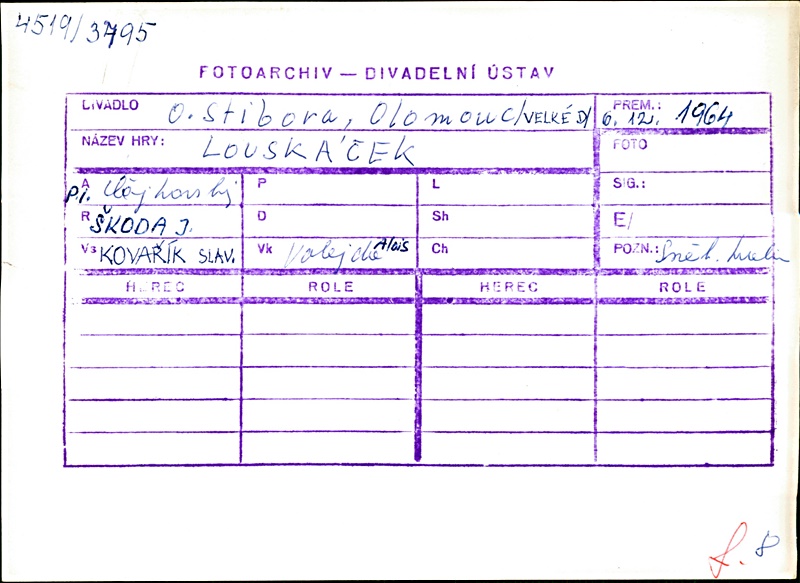 4519/3795
FOTOARCHIV — DIVADELNÍ ÚSTAV
DIVADLO O. Stibora, Olomouc/VELKÉ D/ PREM.: 6. 12. 1964
NÁZEV HRY: LOUSKÁČEK FOTO
A P L SIG.:
R ŠKODA J. D Sh E/
Vs KOVAŘÍK SLAV. Vk Volejdě Alois Ch POZN.:
HEREC ROLE HEREC ROLE
8